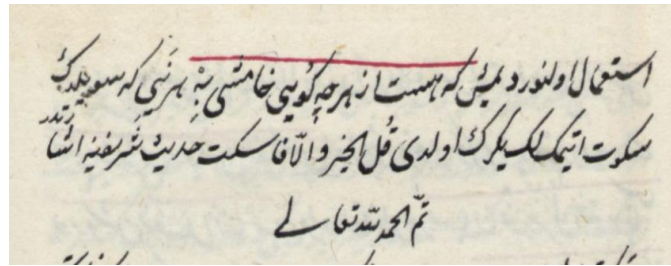 استعمال اولنور دیمش که هست از هر چه گویی خامشی به هر نیی که سویلدك
سکوت اتیمکلك یکرك اولدی قل الخیر والّا فاسکت حدیث شریفنه اشارتدر
تمّ الحمد لله تعالی